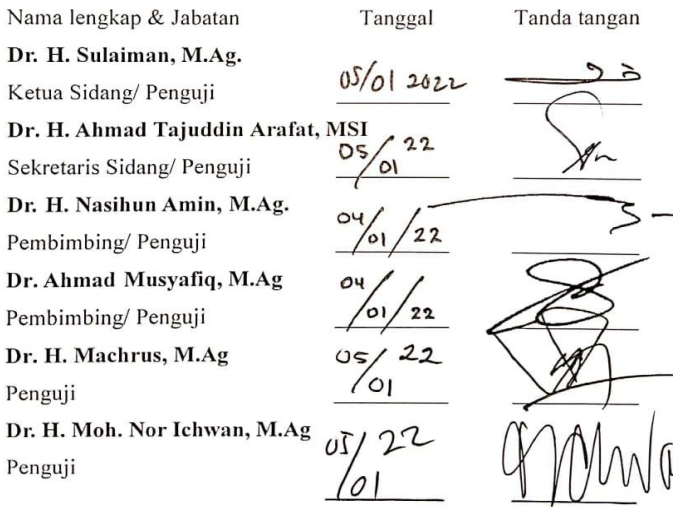 Nama lengkap & Jabatan Tanggal Tanda tangan
Dr. H. Sulaiman, M.Ag.
Ketua Sidang/ Penguji 05/01 2022
Dr. H. Ahmad Tajuddin Arafat, MSI
Sekretaris Sidang/ Penguji 05/01 22
Dr. H. Nasihun Amin, M.Ag.
Pembimbing/ Penguji 04/01/22
Dr. Ahmad Musyafiq, M.Ag
Pembimbing/ Penguji 04/01/22
Dr. H. Machrus, M.Ag
Penguji 05/01 22
Dr. H. Moh. Nor Ichwan, M.Ag
Penguji 05/01 22